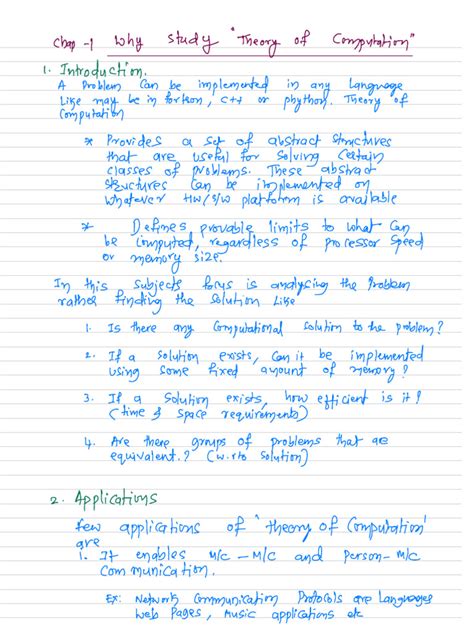 Chap -1 Why study "Theory of Computation"
1. Introduction.
A Problem Can be implemented in any Language
Like may be in fortron, C++ or phython. Theory of
Computation
* Provides a set of abstract structures
that are useful for solving Certain
classes of problems. These abstract
structures Can be implemented on
whatever HW/S/W platform is available
* Defines provable limits to what Can
be Computed, regardless of processor speed
or memory size.
In this subjects focus is analysing the Problem
rather finding the solution Like
1. Is there any Computational Solution to the problem?
2. If a solution exists, Can it be implemented
using some fixed amount of memory?
3. If a Solution exists, how efficient is it?
(time & space requirements)
4. Are there groups of problems that are
equivalent.? (w.r.to solution)
2. Applications
few applications of 'theory of Computation'
are
1. It enables M/c - M/c and person- M/c
Communication.
Ex: Network Communication Protocols are Languages
Web Pages, Music applications etc